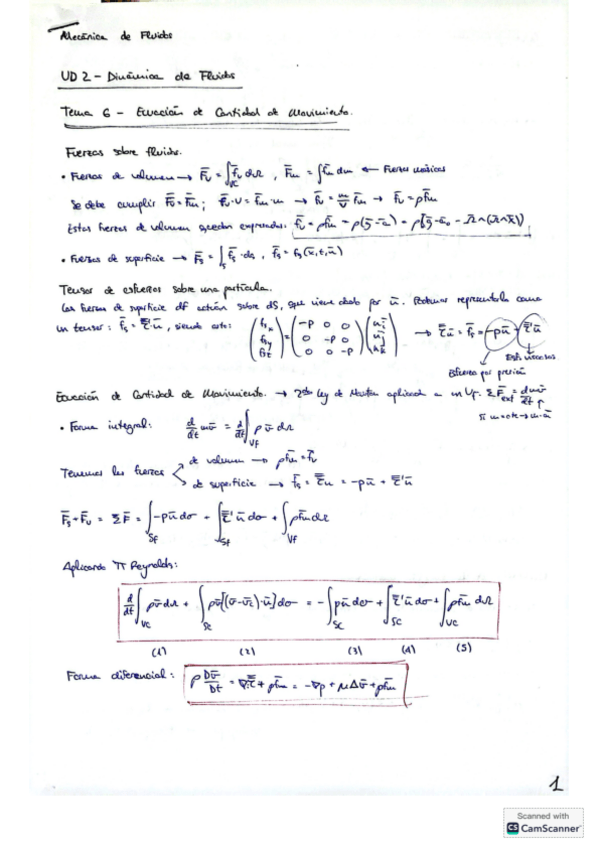 Mecánica de Fluidos
UD 2 - Dinámica de Fluidos
Tema 6 - Ecuación de Cantidad de Movimiento.
Fuerzas sobre fluidos.
• Fuerzas de volumen → F̄v = ∫vc f̄v dΩ , F̄m = ∫ f̄m dm ← Fuerzas másicas
Se debe cumplir F̄v = F̄m ; f̄v·V = f̄m·m → f̄v = m/V f̄m → f̄v = ρf̄m
Estas fuerzas de volumen quedan expresadas: f̄v = ρf̄m = ρ(ḡ-ā) = ρ[ḡ-ā₀ - Ω̄∧(Ω̄∧x̄)]
• Fuerzas de superficie → F̄s = ∫s f̄s·ds , f̄s = fs(x̄,t,n̄)
Tensor de esfuerzos sobre una partícula.
Las fuerzas de superficie df actúan sobre dS, que viene dado por n̄. Podemos representarla como
un tensor: f̄s = τ̿·n̄, siendo esto: (fsx fsy fsz) = (-p 0 0 0 -p 0 0 0 -p) (ni nj nk) → τ̿n̄ = f̄s = -pn̄ + τ̿'n̄
Esf. viscosos
Esfuerzo por presión
Ecuación de Cantidad de Movimiento. → 2da Ley de Newton aplicada a un Vf. ΣF̄ext = dmv̄/dt
si m=cte → m·ā
• Forma integral: d/dt mv̄ = d/dt ∫Vf ρv̄ dΩ
Tenemos las fuerzas
de volumen → ρf̄m = f̄v
de superficie → f̄s = τ̿n̄ = -pn̄ + τ̿'n̄
F̄s + F̄v = ΣF̄ = ∫Sf -pn̄dσ + ∫Sf τ̿'n̄dσ + ∫Vf ρf̄mdΩ
Aplicando TT Reynolds:
d/dt ∫Vc ρv̄dΩ + ∫Sc ρv̄[(v̄-v̄c)·n̄]dσ = -∫Sc pn̄dσ + ∫Sc τ̿'n̄dσ + ∫Vc ρf̄m dΩ
(1) (2) (3) (4) (5)
Forma diferencial: ρ Dv̄/Dt = ∇·τ̿ + ρf̄m = -∇p + μΔv̄ + ρf̄m
1
Scanned with
CS CamScanner